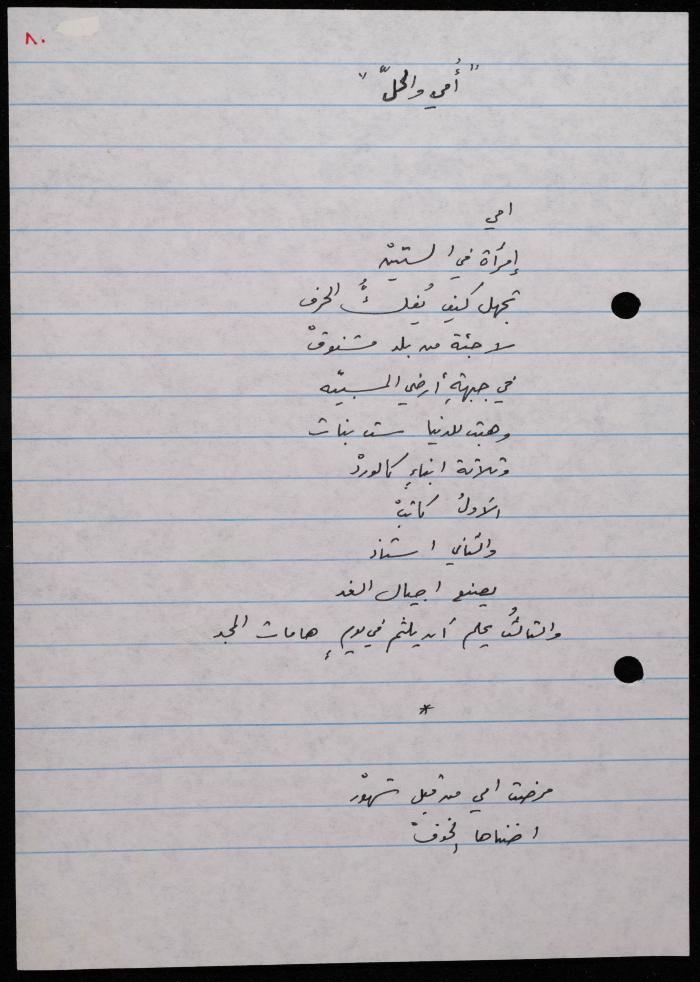 ٨٠
"أُمي والحلّ"
امي
إمرأة في الستينْ
تجهل كيف يُفكُّ الحرف
لاجئة من بلد مشنوقْ
في جبهةِ أرضي المسبيّه
وهبت للدنيا ست بنات
وثلاثة ابناءٍ كالوردْ
الاَولُ كاتبْ
والثاني استاذ
يصنع اجيال الغد
والثالثُ يحلم أن يلثم في يومٍ هامات المجد
*
مرضت امي من قبل شهورْ
اضناها الخوفْ